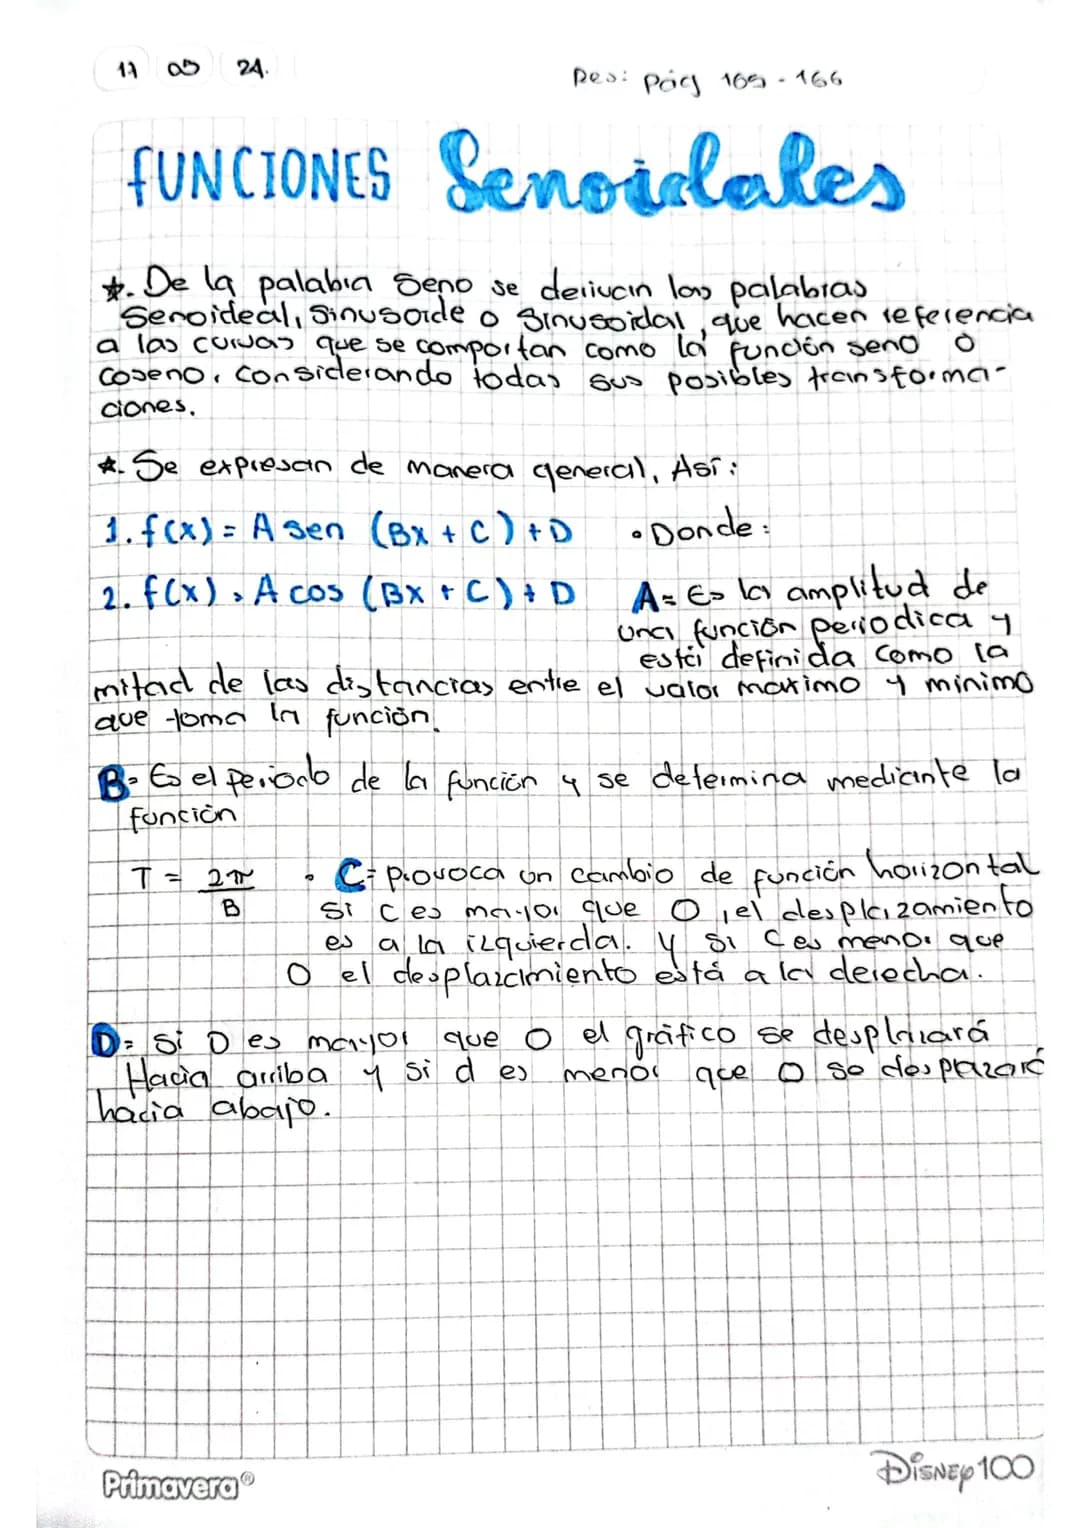 17 05 24.
Des: Pág 165 - 166
fUNCIONES Senoidales
*. De la palabra seno se derivan las palabras
senoideal, sinusoide o sinusoidal, que hacen referencia
a las curvas que se comportan como la función seno o
coseno, considerando todas sus posibles transforma-
ciones.
*. Se expresan de manera general, Así:
1. f(x) = A sen (Bx + C) + D
• Donde:
2. f(x) = A cos (Bx + C) + D
A = Es la amplitud de
una función periodica y
está definida como la
mitad de las distancias entre el valor maximo y minimo
que toma la función.
B = Es el periodo de la función y se determina mediante la
función
T = 2π
B
• C = provoca un cambio de función horizontal
si c es mayor que 0, el desplazamiento
es a la izquierda. y si c es menor que
0 el desplazamiento está a la derecha.
D = si D es mayor que 0 el gráfico se desplazará
Hacia arriba y si d es menor que 0 se desplazará
hacia abajo.
Primavera®
Disney 100